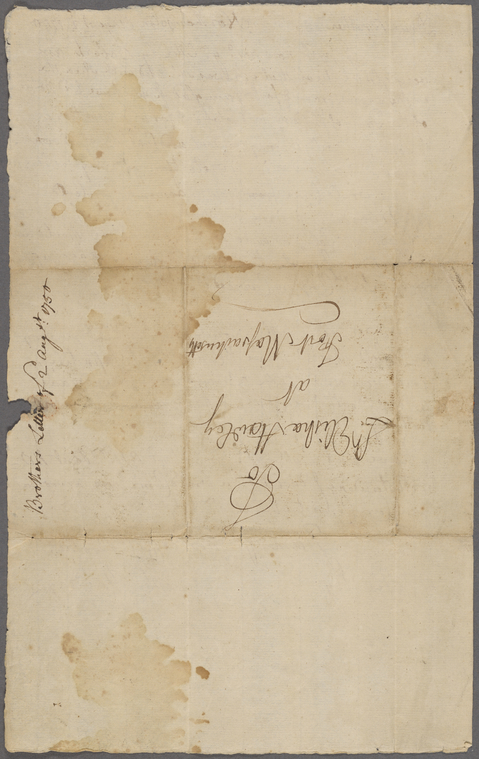 To
Lt. Elisha Hawley
at
Fort Massachusetts
Brothers Letter of 2 Augst. 1750